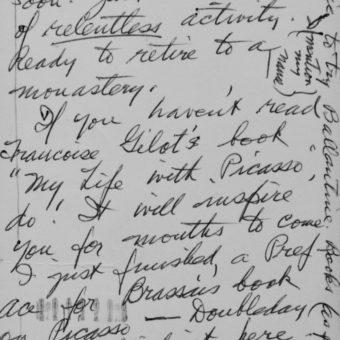 soon.
of relentless activity.
Ready to retire to a
monastery.
If you haven't read
Francoise Gilot's book
"My Life with Picasso,"
do. It will inspire
you for months to come.
I just finished a Pref-
ace for Brassai's book
on Picasso — Doubleday
here
to try Ballantine Books
(mention
my
name)